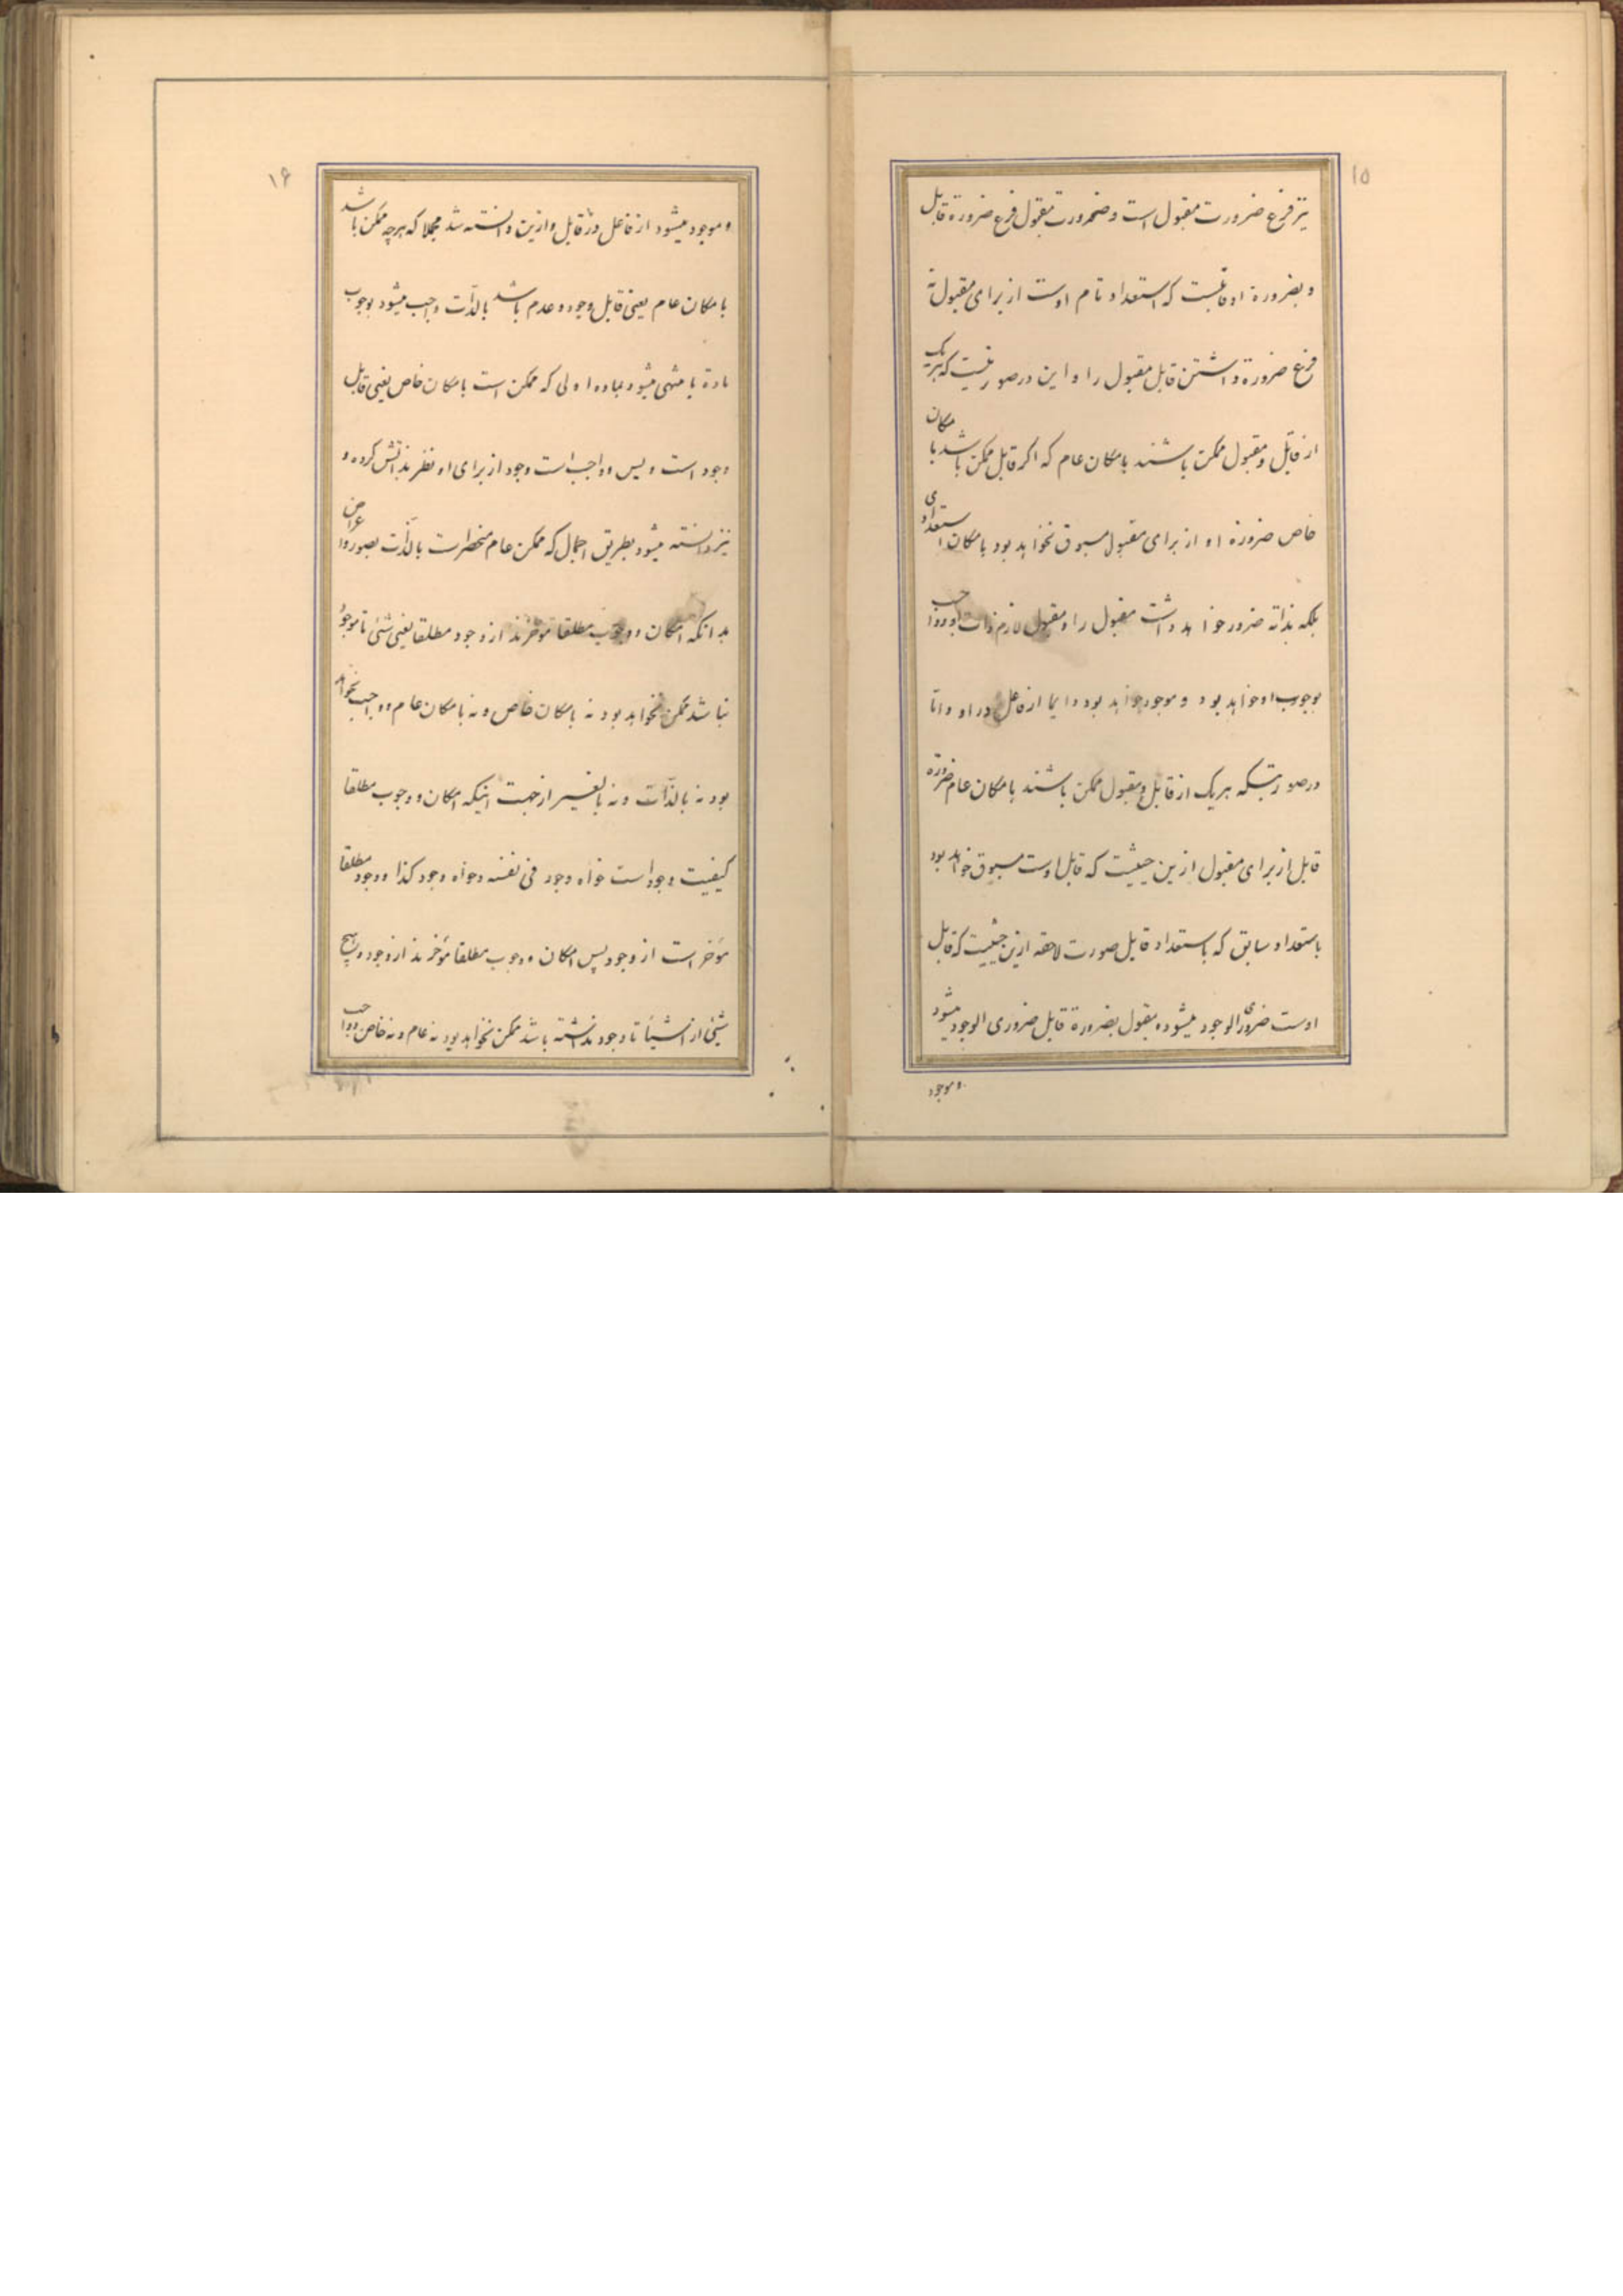 ۱۵
نیز فرع ضرورت مقبول است و ضرورت مقبول فرع ضرورة قابل
و بضرورة او قابلیست که استعداد تام اوست از برای مقبول نه
فرع ضرورة داشتن قابل مقبول را و این در صورتیست که هر یک
از قابل و مقبول ممکن باشند بامکان عام که اگر قابل ممکن باشد بامکان
خاص ضرورة او از برای مقبول مسبوق نخواهد بود بامکان استعدادی
بلکه بذاته ضرور خواهد داشت مقبول را و مقبول لازم ذات او و واجب
بوجوب او خواهد بود و موجود خواهد بود دایما از فاعل در او و اما
در صورتیکه هر یک از قابل و مقبول ممکن باشند بامکان عام ضرورة
قابل از برای مقبول ازین حیثیت که قابل اوست مسبوق خواهد بود
باستعداد سابق که باستعداد قابل صورت لاحقه ازین حیثیت که قابل
اوست ضروری الوجود میشود و مقبول بضرورة قابل ضروری الوجود میشود
و موجود
۱۶
و موجود میشود از فاعل در قابل و ازین دانسته شد مجملا که هر چه ممکن باشد
بامکان عام یعنی قابل وجود و عدم باشد بالذات واجب میشود بوجوب
مادة یا منتهی میشود بماده اولی که ممکن است بامکان خاص یعنی قابل
وجود است و بس و واجب است وجود از برای او نظر بذاتش کرده و
نیز دانسته میشود بطریق اجمال که ممکن عام منحصر است بالذات بصور و اعراض
بدانکه امکان و وجوب مطلقا مؤخرند از وجود مطلقا یعنی شئی تا موجود
نباشد ممکن نخواهد بود نه بامکان خاص و نه بامکان عام و واجب نخواهد
بود نه بالذات و نه بالغیر از جهت اینکه امکان و وجوب مطلقا
کیفیت وجود است خواه وجود فی نفسه و خواه وجود کذا و وجود مطلقا
مؤخر است از وجود پس امکان و وجوب مطلقا مؤخرند از وجود و هیچ
شیئی از اشیا تا وجود نداشته باشد ممکن نخواهد بود نه عام و نه خاص و واجب